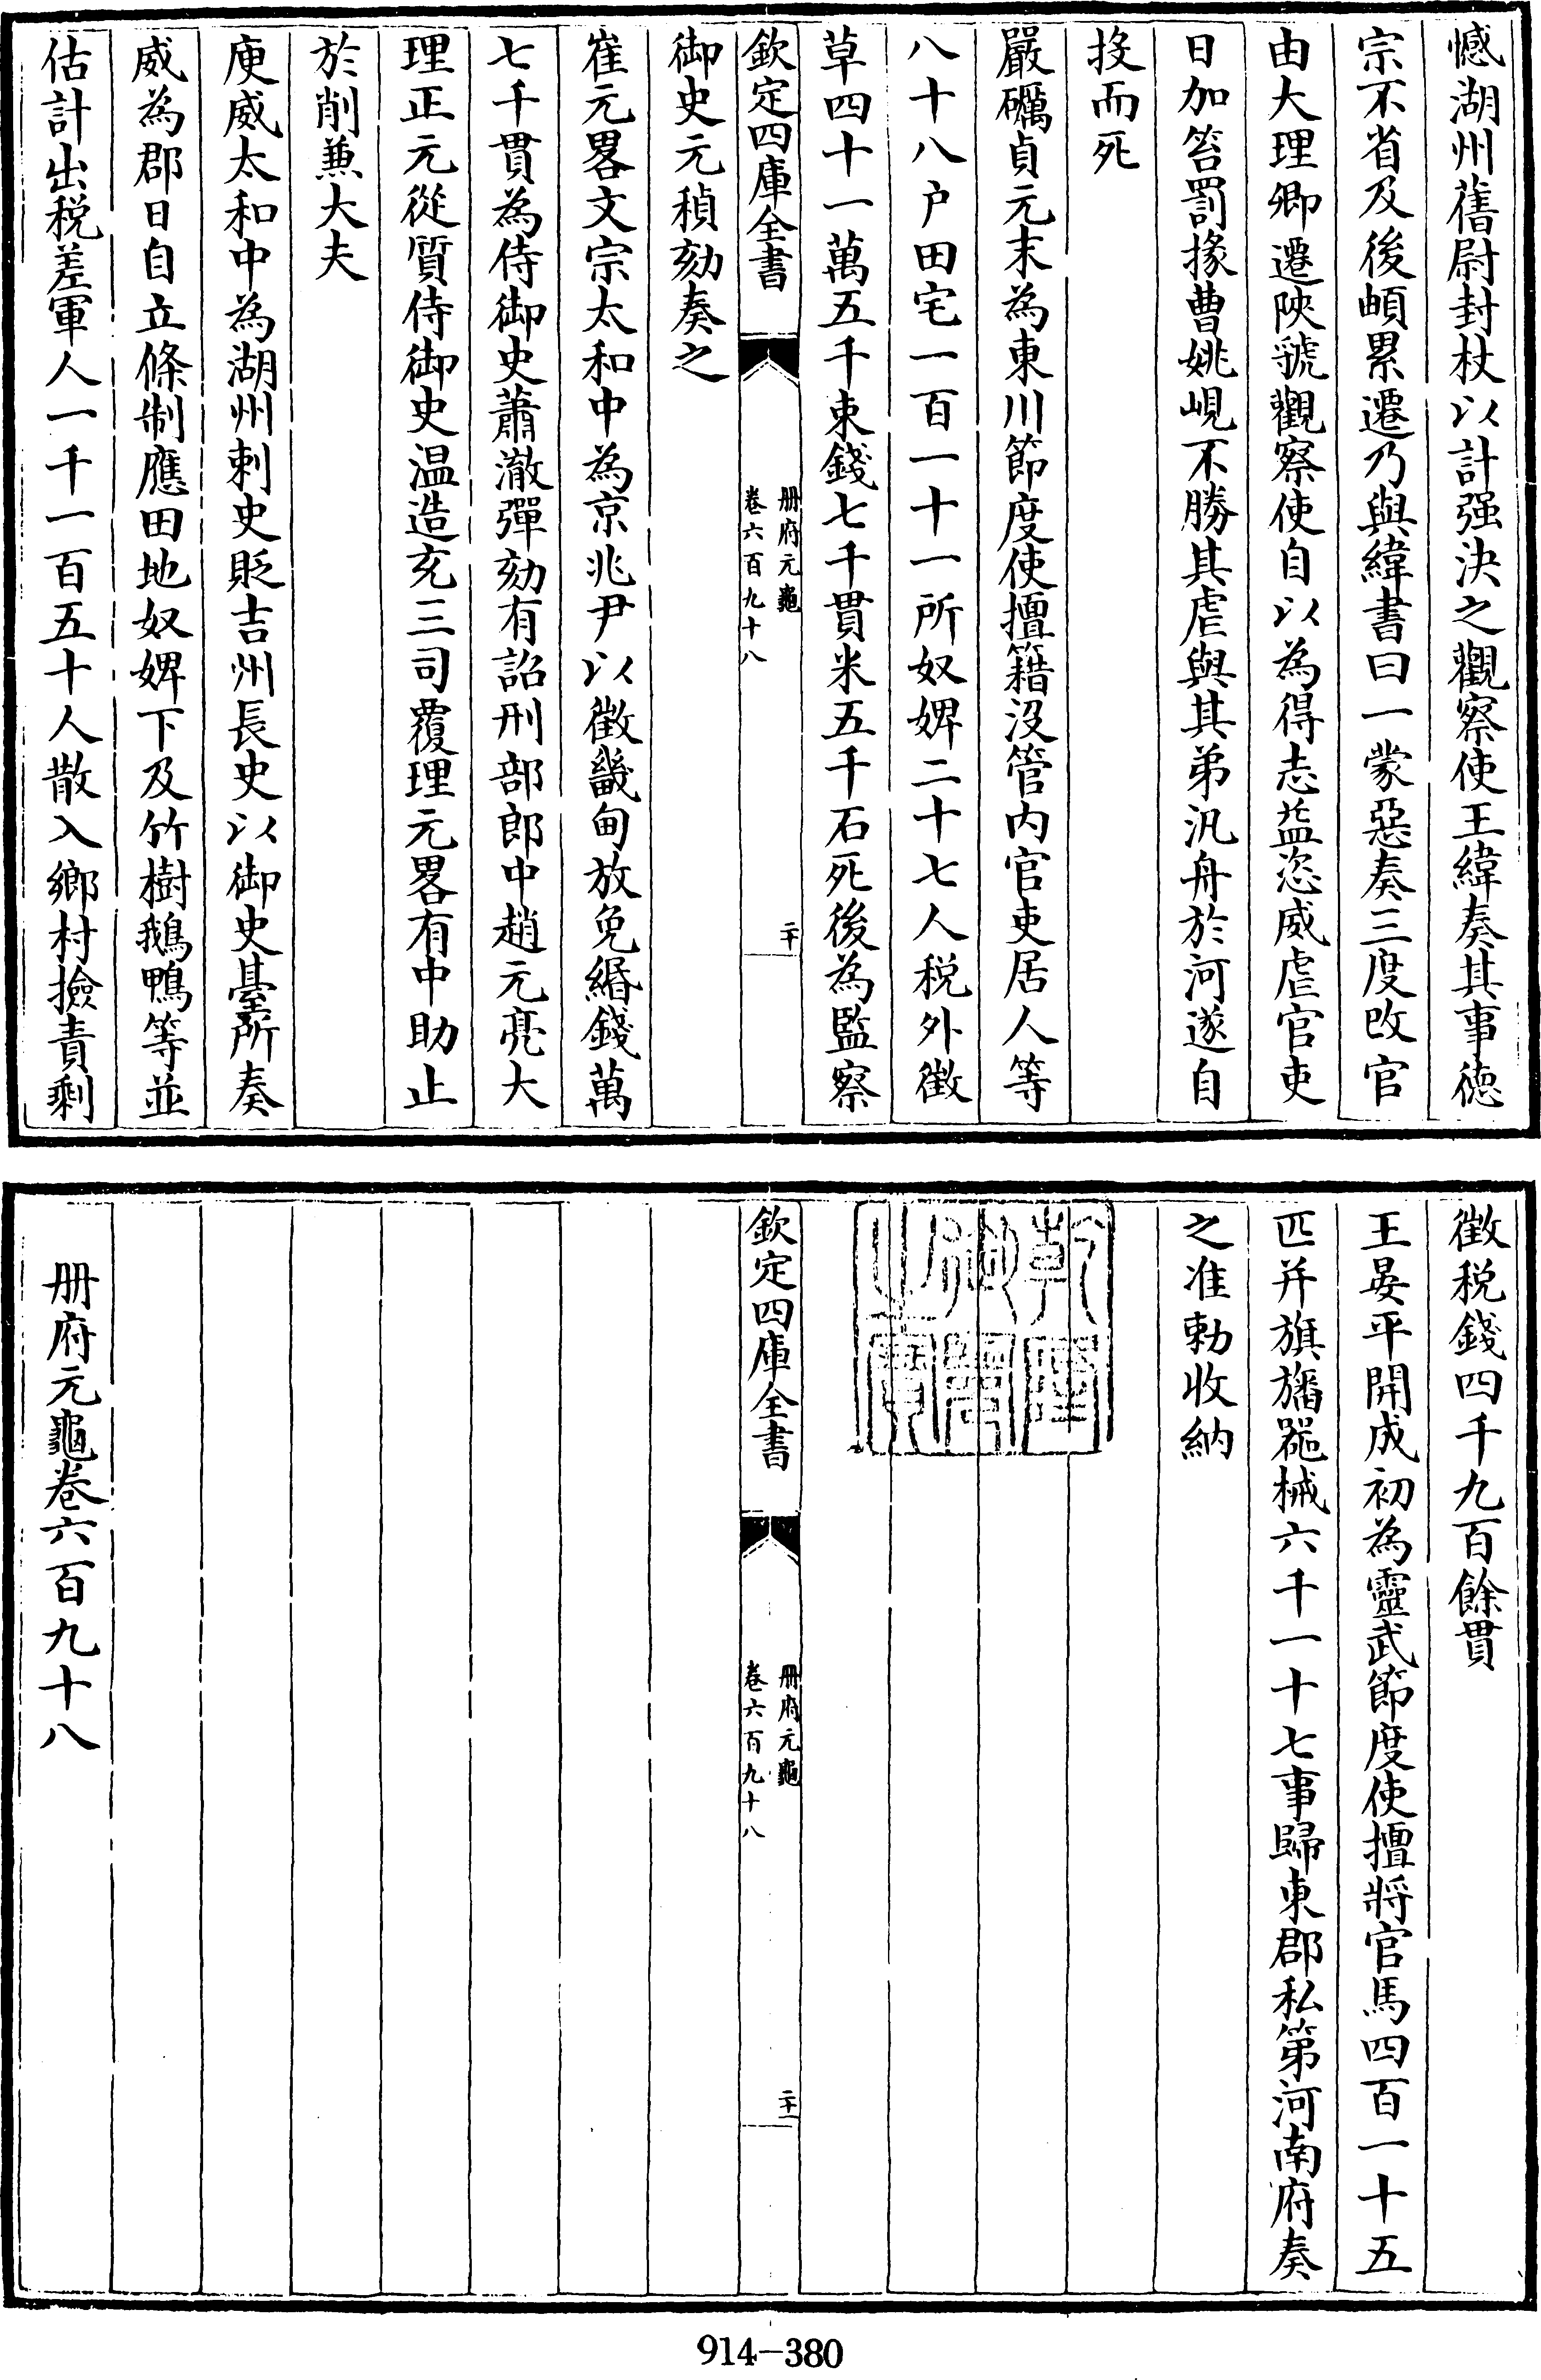 憾湖州舊尉封杖以計强決之觀察使王緯奏其事徳
宗不省及後頔累遷乃與緯書曰一蒙惡奏三度改官
由大理卿遷陜虢觀察使自以為得志益恣威虐官吏
日加笞罰掾曹姚峴不勝其虐與其弟汎舟於河遂自
投而死
嚴礪貞元末為東川節度使擅籍没管内官吏居人等
八十八户田宅一百一十一所奴婢二十七人税外徴
草四十一萬五千束錢七千貫米五千石死後為監察
欽定四庫全書
册府元龜
卷六百九十八
二十
御史元稹劾奏之
崔元畧文宗太和中為京兆尹以徴畿甸放免緡錢萬
七千貫為侍御史蕭澈彈劾有詔刑部郎中趙元亮大
理正元從質侍御史温造充三司覆理元畧有中助止
於削兼大夫
庾威太和中為湖州刺史貶吉州長史以御史臺所奏
威為郡日自立條制應田地奴婢下及竹樹鵝鴨等並
估計出税差軍人一千一百五十人散入鄉村撿責剩
徴税錢四千九百餘貫
王晏平開成初為靈武節度使擅將官馬四百一十五
匹并旗旛器械六千一十七事歸東郡私第河南府奏
之准勅收納
乾隆御覽之寶
欽定四庫全書
册府元龜
卷六百九十八
二十一
册府元龜卷六百九十八
914-380